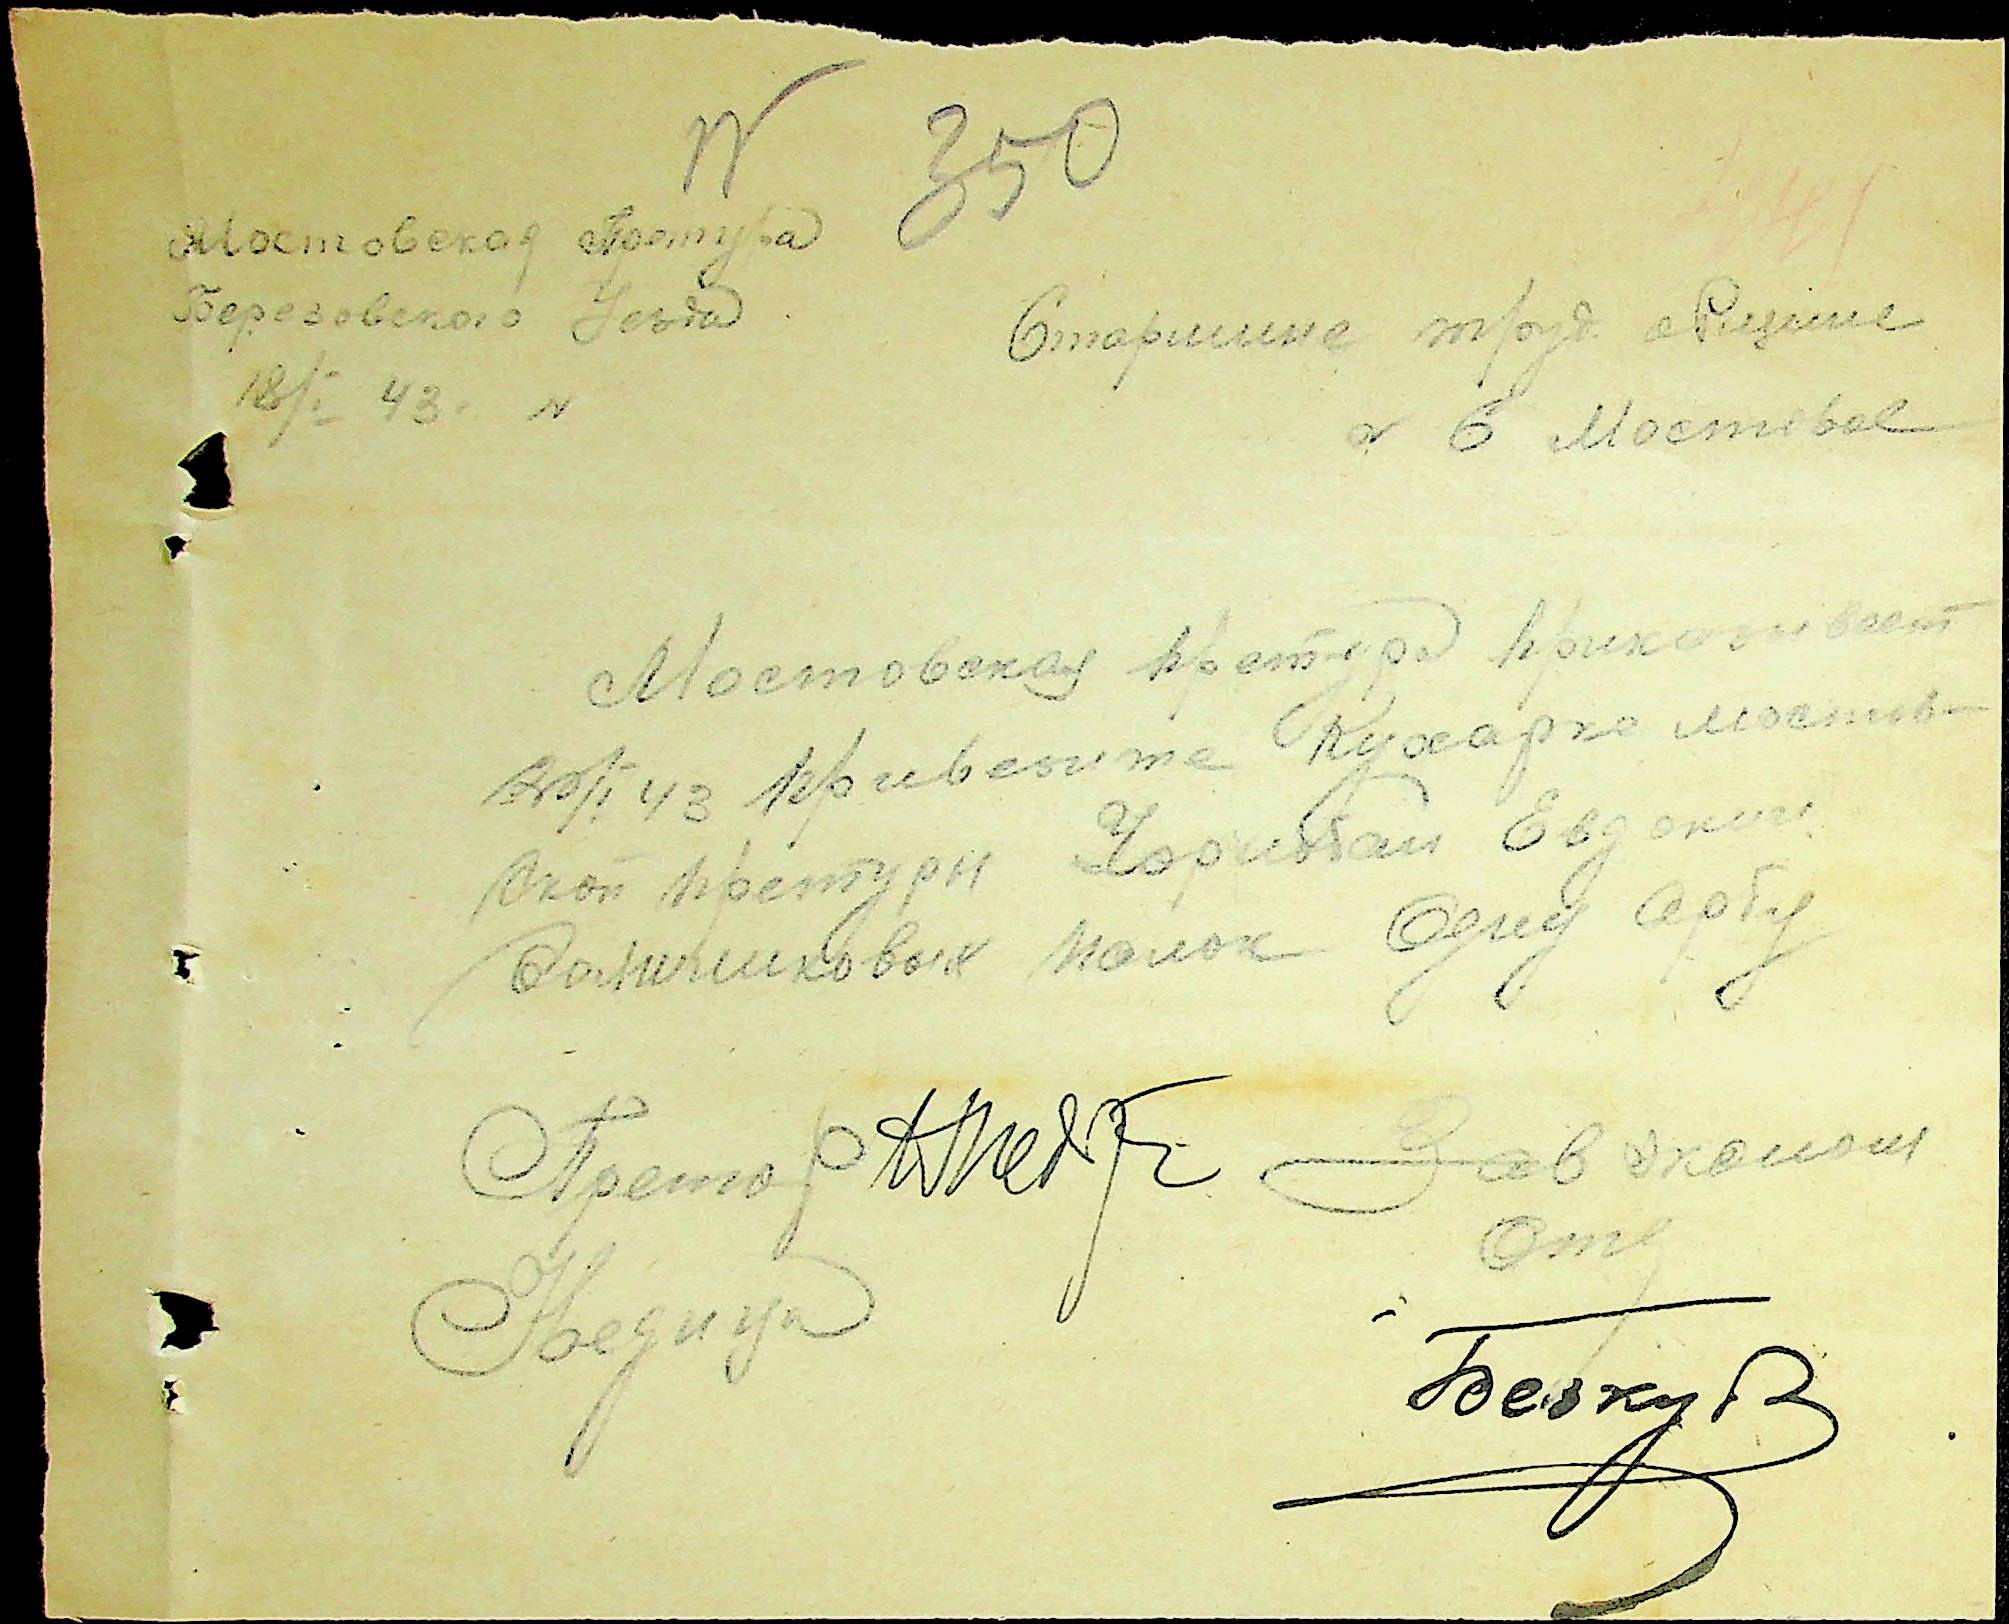 N 350
Мостовская Претура
Березовского Уезда
18/I 43.
Старшине труд общине
С Мостовое
Мостовская претура приказивает
43 привезите Кухарке мостов-
ской претуры Евдокии
палок одну арбу
Претор
Зав эконом
Отд
Недица
Безкуб